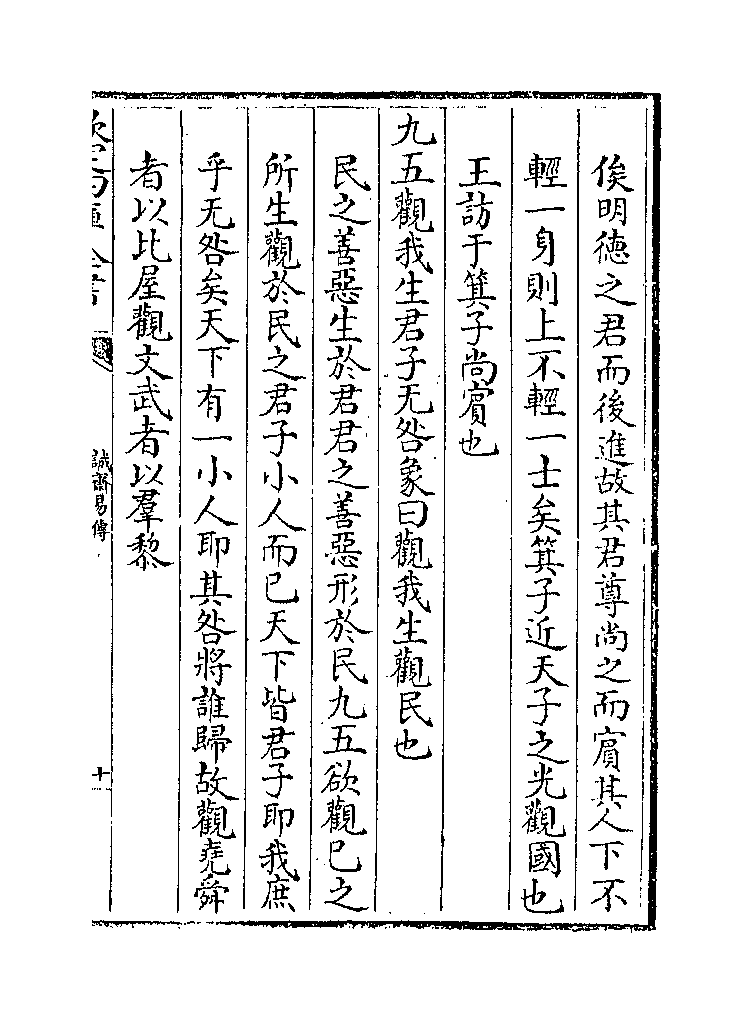 俟明徳之君而後進故其君尊尚之而賔其人下不
輕一身則上不輕一士矣箕子近天子之光觀國也
王訪于箕子尚賔也
九五觀我生君子无咎象曰觀我生觀民也
民之善惡生於君君之善惡形於民九五欲觀已之
所生觀於民之君子小人而已天下皆君子即我庶
乎无咎矣天下有一小人即其咎將誰歸故觀堯舜
者以比屋觀文武者以羣黎
誠齋易傳
十